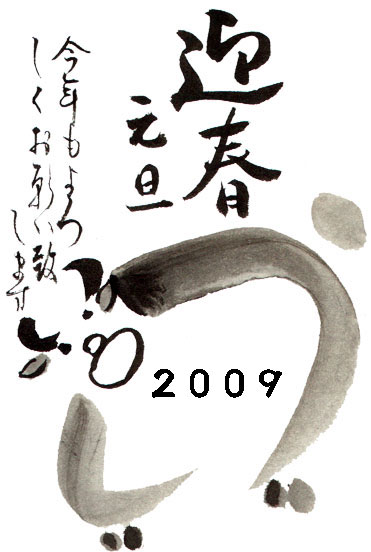 迎春
元旦
今年もよろ
しくお願い致
します
2009